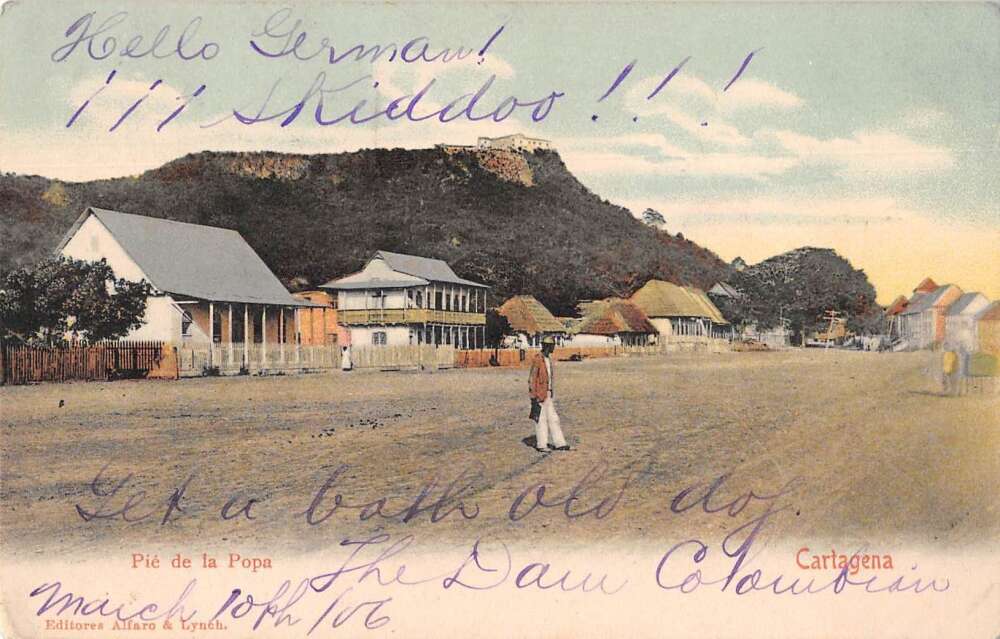 Hello German!
! ! ! Skiddoo ! ! !
Get a bath old dog.
Pié de la Popa
Cartagena
The Dam Colombian
March 10th /06
Editores Alfaro & Lynch.